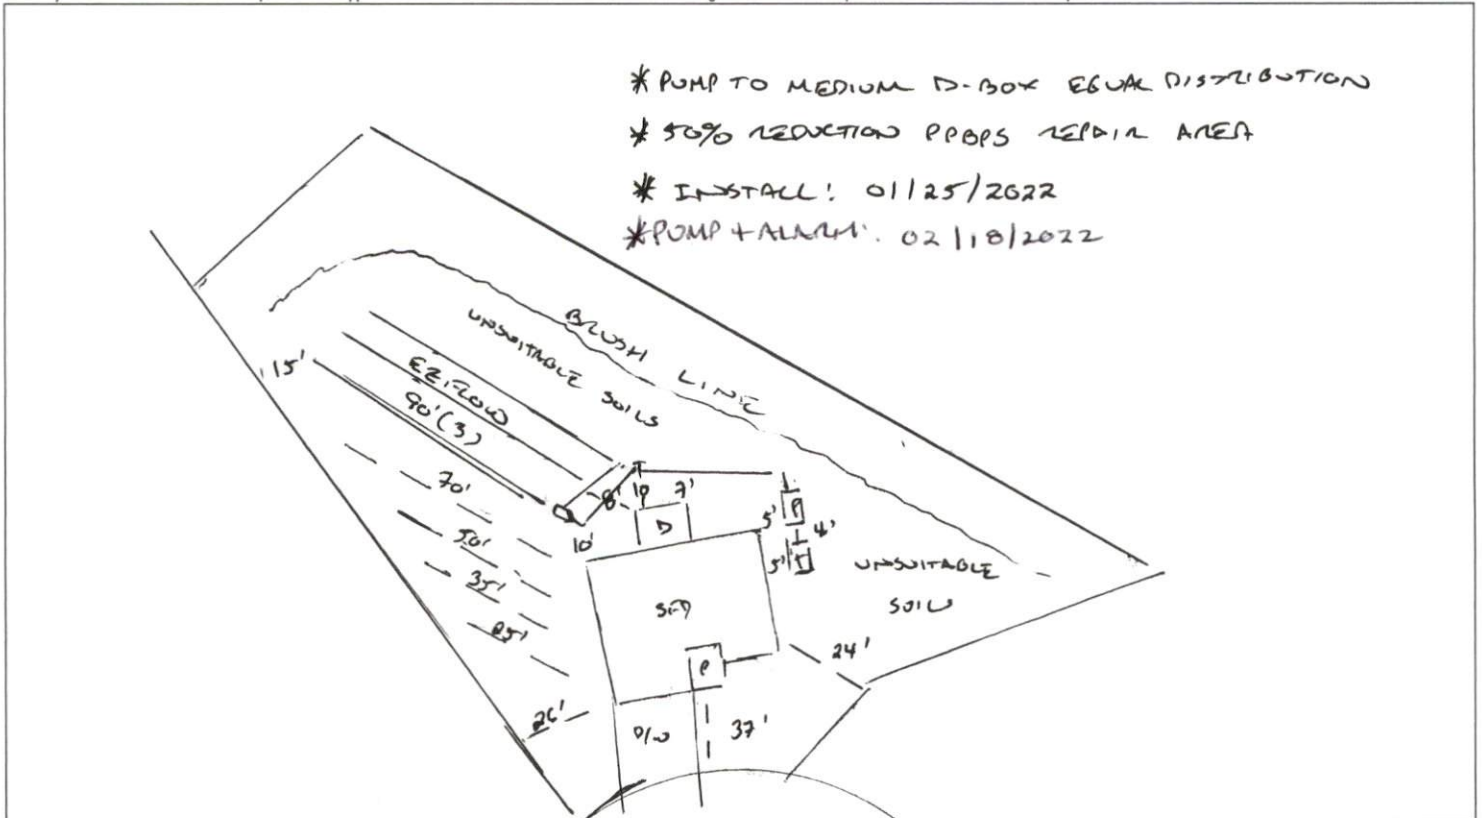 * PUMP TO MEDIUM D-BOX EQUAL DISTRIBUTION
* 50% REDUCTION PPBPS REPAIR AREA
* INSTALL: 01/25/2022
* PUMP + ALARM: 02/18/2022
BRUSH LINE
UNSUITABLE SOILS
15'
EZ FLOW
90' (3)
70'
50'
35'
25'
26'
8'
10
7'
10'
D
5'
P
4'
5'
T
UNSUITABLE
SOIL
SFD
P
24'
D/W
37'